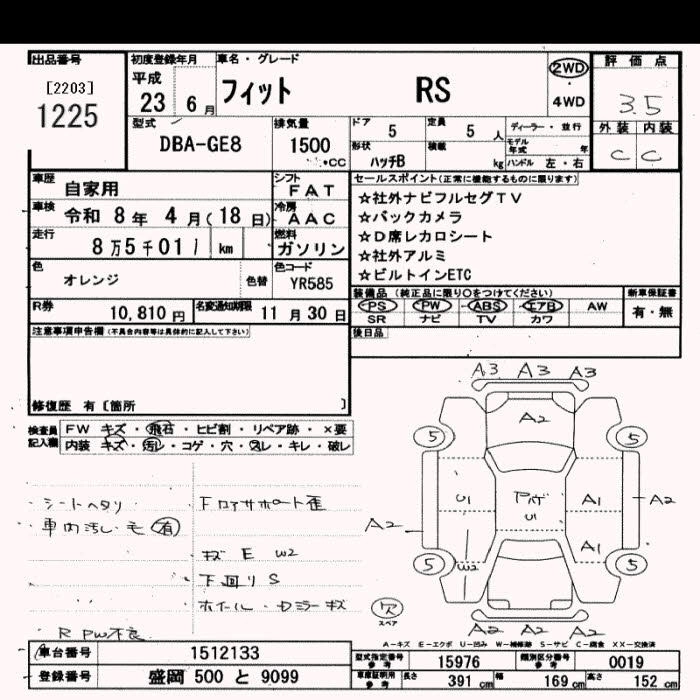 出品番号
[2203]
1225
初度登録年月
平成
23 6月
車名・グレード
フィット RS
2WD
4WD
評価点
3.5
外装 内装
C C
型式
DBA-GE8
排気量
1500
・CC
ドア
5
定員
5 人
形状
ハッチB
積載
kg
ディーラー・並行
モデル年式 年
ハンドル 左・右
車歴
自家用
シフト
FAT
車検
令和 8年 4月(18日)
冷房
AAC
走行
8万5千011 km
燃料
ガソリン
色
オレンジ
色替
色コード
YR585
R券
10,810円
名変通知期限
11月30日
セールスポイント(正常に機能するものに限ります)
☆社外ナビフルセグTV
☆バックカメラ
☆D席レカロシート
☆社外アルミ
☆ビルトインETC
装備品(純正品に限り○をつけてください)
PS PW ABS エアB AW
SR ナビ TV カワ
新車保証書
有・無
後日品
注意事項申告欄(不具合内容等は具体的に記入して下さい)
修復歴 有〔箇所 〕
検査員
記入欄
FW キズ・飛石・ヒビ割・リペア跡・×要
内装 キズ・汚レ・コゲ・穴・スレ・キレ・破レ
・シートヘタリ
・車内汚し・モ 有
フロアサポート歪
キズ E W2
下回り S
ホイール・ドミラーキズ
R PW不良
A3 A3 A3
A2
5 5
U1 アンテナ U1 A1
A2 A2
A1
5 W2 5
穴
スペア
A2 A2 A2
A-キズ E-エクボ U-凹み W-補修跡 S-サビ C-腐食 XX-交換済
車台番号
1512133
登録番号
盛岡 500 と 9099
型式指定番号
参考
15976
類別区分番号
参考
0019
車庫証明用
参考
長さ 391cm 幅 169cm 高さ 152cm